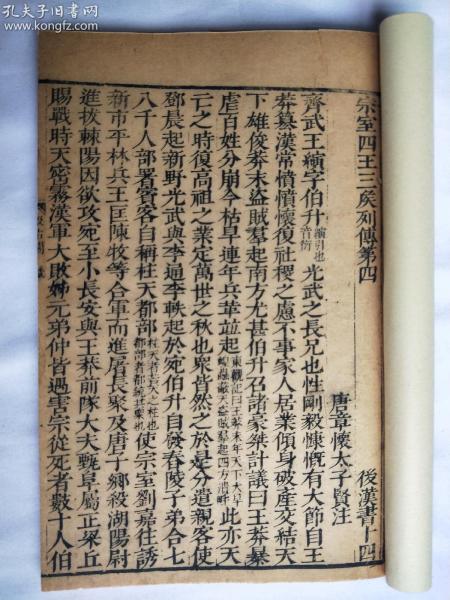 孔夫子旧书网
www.kongfz.com
宗室四王三矦列傳第四
後漢書十四
唐章懷太子賢注
齊武王縯字伯升
光武之長兄也性剛毅慷慨有大節自王
莽篡漢常憤憤懷復社稷之慮不事家人居業傾身破産交結天
下雄俊莽末盜賊羣起南方尤甚伯升召諸豪桀計議曰王莽暴
虐百姓分崩今枯旱連年兵革並起
東觀記曰王莽末年天下大旱
蝗蟲蔽天盜賊羣起四方潰畔
此亦天
亡之時復高祖之業定萬世之秋也衆皆然之於是分遣親客使
鄧晨起新野光武與李通李軼起於宛伯升自發舂陵子弟合七
八千人部署賓客自稱柱天都部
柱天者若天之柱也
都部者都統其衆也
使宗室劉嘉往誘
新市平林兵王匡陳牧等合軍而進屠長聚及唐子鄉殺湖陽尉
進拔棘陽因欲攻宛至小長安與王莽前隊大夫甄阜屬正梁丘
賜戰時天密霧漢軍大敗姊元弟仲皆遇害宗從死者數十人伯